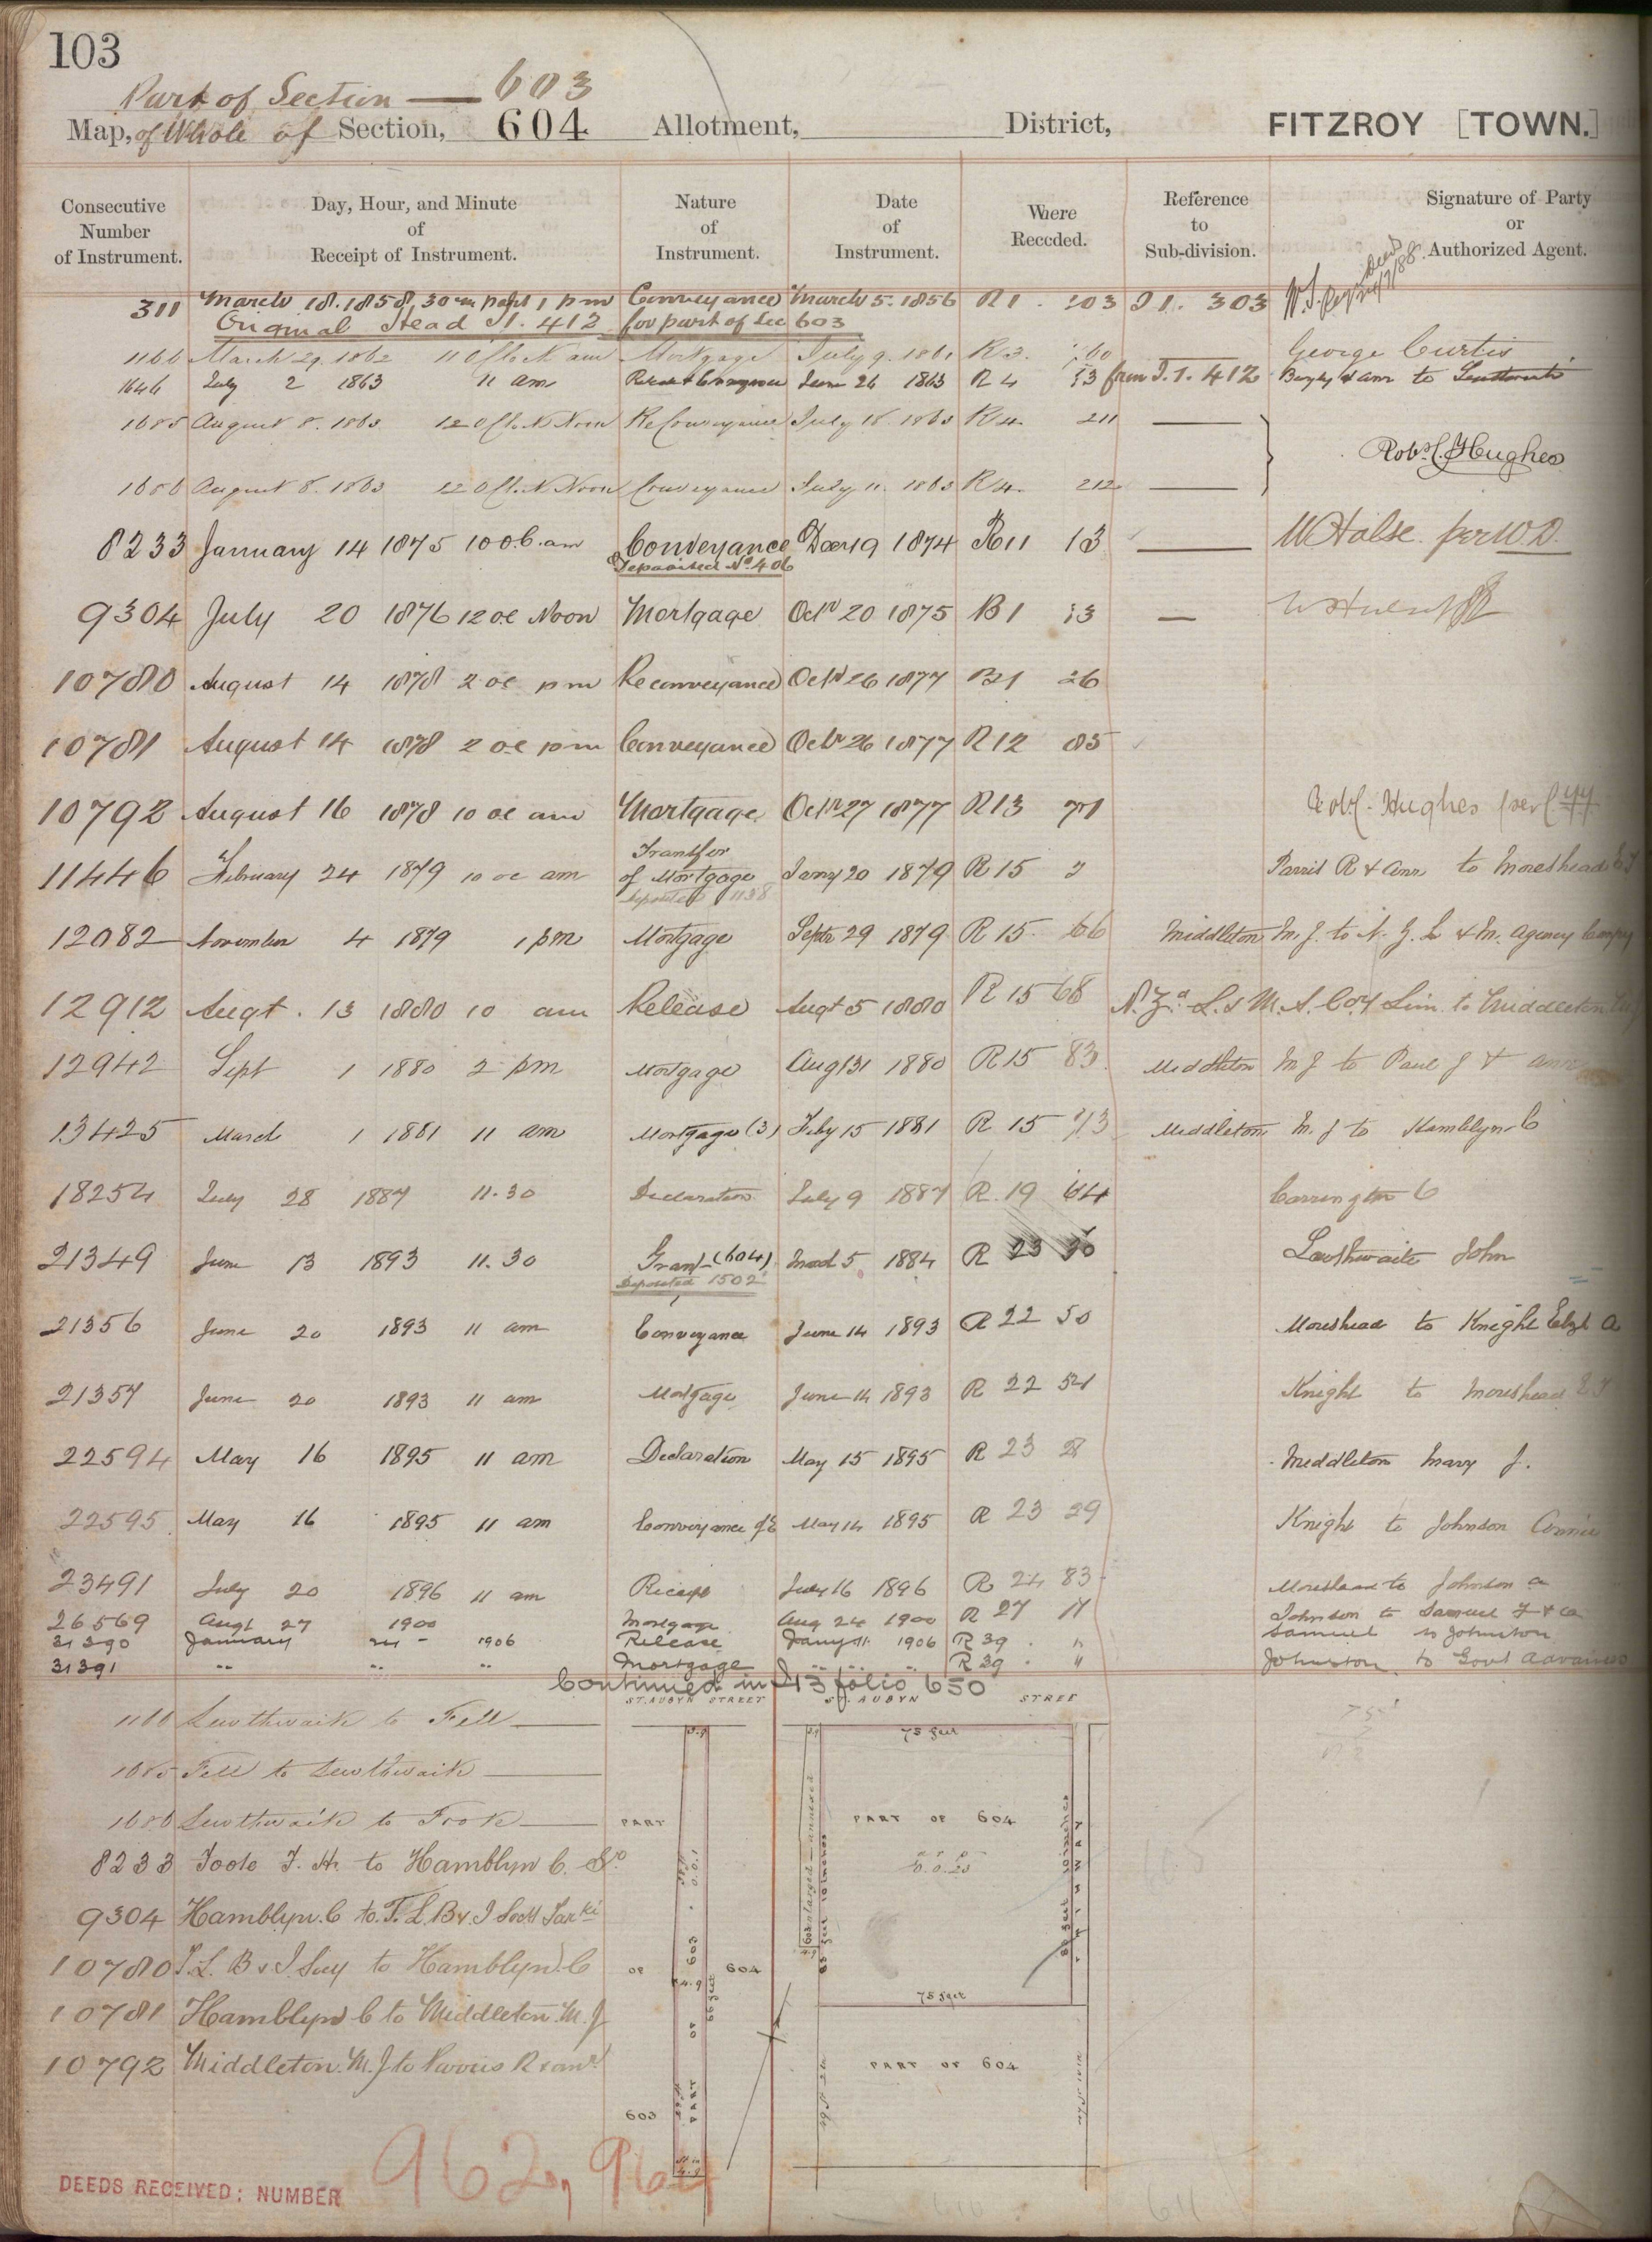 103
Part of Section — 603
Map, of Whole of Section, 604 Allotment, District, FITZROY [TOWN.]
Consecutive Number of Instrument.
Day, Hour, and Minute of Receipt of Instrument.
Nature of Instrument.
Date of Instrument.
Where Recorded.
Reference to Sub-division.
Signature of Party or Authorized Agent.
311 March 18. 1858, 30 m past 1 pm Conveyance March 5. 1856 R 1 I 1. 303
Original Head I 1. 412 for part of Sec 603
1166 March 29. 1862 11 O'Clock am Mortgage July 9. 1861 R 3. George Curtis
1646 July 2 1863 11 am June 26 1863 R 4 from I. 1. 412
1685 August 8. 1863 12 O'Clock Noon ReConveyance July 18. 1863 R 4. 211
Robt C. Hughes
1686 August 8. 1863 12 O'Clock Noon Conveyance July 11. 1863 R 4. 212
8233 January 14 1875 10 o.c. am Conveyance Decr 19 1874 R 11 13 W Halse. per W.D.
Deposited No. 406
9304 July 20 1876 12 oc Noon Mortgage Octr 20 1875 B 1 —
10780 August 14 1878 2 oc pm Reconveyance Octr 26 1877 B 1 26
10781 August 14 1878 2 oc pm Conveyance Octr 26 1877 R 12 85
10792 August 16 1878 10 oc am Mortgage Octr 27 1877 R 13 71 Robt C. Hughes per
11446 February 24 1879 10 oc am Transfer of Mortgage Jany 20 1879 R 15 Parris R & anr to Moreshead
Deposited 1138
12082 November 4 1879 1 pm Mortgage Septr 29 1879 R 15 66 Middleton M. J. to N. Z. L & M. Agency Compy
12912 Augt. 13 1880 10 am Release Augt 5 1880 R 15 68 N. Zd. L. & M. A. Coy Lim. to Middleton
12942 Sept 1 1880 2 pm Mortgage Aug 31 1880 R 15 83 Middleton M J to Paul J & anr
13425 March 1 1881 11 am Mortgage (3) Feby 15 1881 R 15 Middleton M. J to Hamblyn C
18254 July 28 1887 11.30 Declaration July 9 1887 R. 19 64 Carrington C
21349 June 13 1893 11.30 Grant (604) Mach 5 1884 R 23 Lewthwaite John
Deposited 1502
21356 June 20 1893 11 am Conveyance June 14 1893 R 22 50 Moreshead to Knight Elizh A
21357 June 20 1893 11 am Mortgage June 14 1893 R 22 51 Knight to Moreshead
22594 May 16 1895 11 am Declaration May 15 1895 R 23 28 Middleton Mary J.
22595 May 16 1895 11 am Conveyance of E May 14 1895 R 23 29 Knight to Johnson Annie
23491 July 20 1896 11 am Receipt July 16 1896 R 24 83 Moreshead to Johnson A
26569 Augt 27 1900 Mortgage Aug 24 1900 R 27 Johnson to Samuel F & an
31390 January 24 - 1906 Release Jany 11. 1906 R 39 Samuel to Johnston
31391 " " " Mortgage " " " R 39 Johnston to Govt Advances
Continued in I 13 folio 650
ST. AUBYN STREET ST. AUBYN STREET
1166 Lewthwaite to Fell
1685 Fell to Lewthwaite
1686 Lewthwaite to Took
8233 Toole T. H. to Hamblyn C. Sr
9304 Hamblyn. C to T. L. B & I Socy Taranki
10780 T. L. B & I. Socy to Hamblyn C
10781 Hamblyn C to Middleton. M. J
10792 Middleton. M. J to Parris R & anr
PART OF 604
603
PART OF 603
4.9
603 enlarged - annexed
75 feet
PART OF 604
0.0.23
RIGHT WAY
75 feet
PART OF 604
DEEDS RECEIVED: NUMBER 962, 964